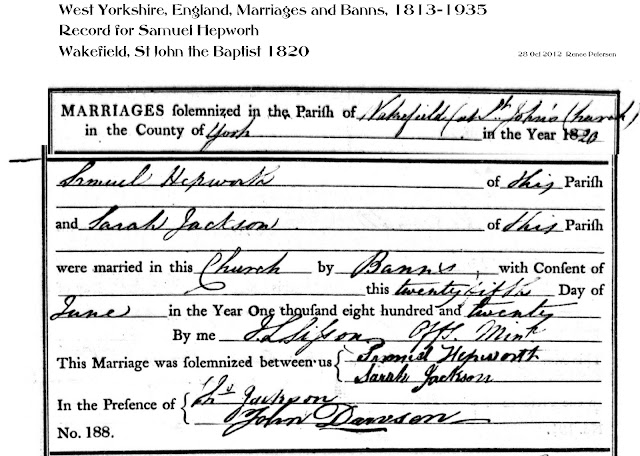 West Yorkshire, England, Marriages and Banns, 1813-1935
Record for Samuel Hepworh
Wakefield, St John the Baptist 1820
28 Oct 2012 Renee Petersen
MARRIAGES solemnized in the Parish of Wakefield (at St. John's Church)
in the County of York in the Year 1820
Samuel Hepworth of this Parish
and Sarah Jackson of this Parish
were married in this Church by Banns, with Consent of
this twenty fifth Day of
June in the Year One thousand eight hundred and twenty
By me J L Sisson Offg. Mintr
This Marriage was solemnized between us { Samuel Hepworth
Sarah Jackson
In the Presence of { Ths Jackson
John Dawson
No. 188.